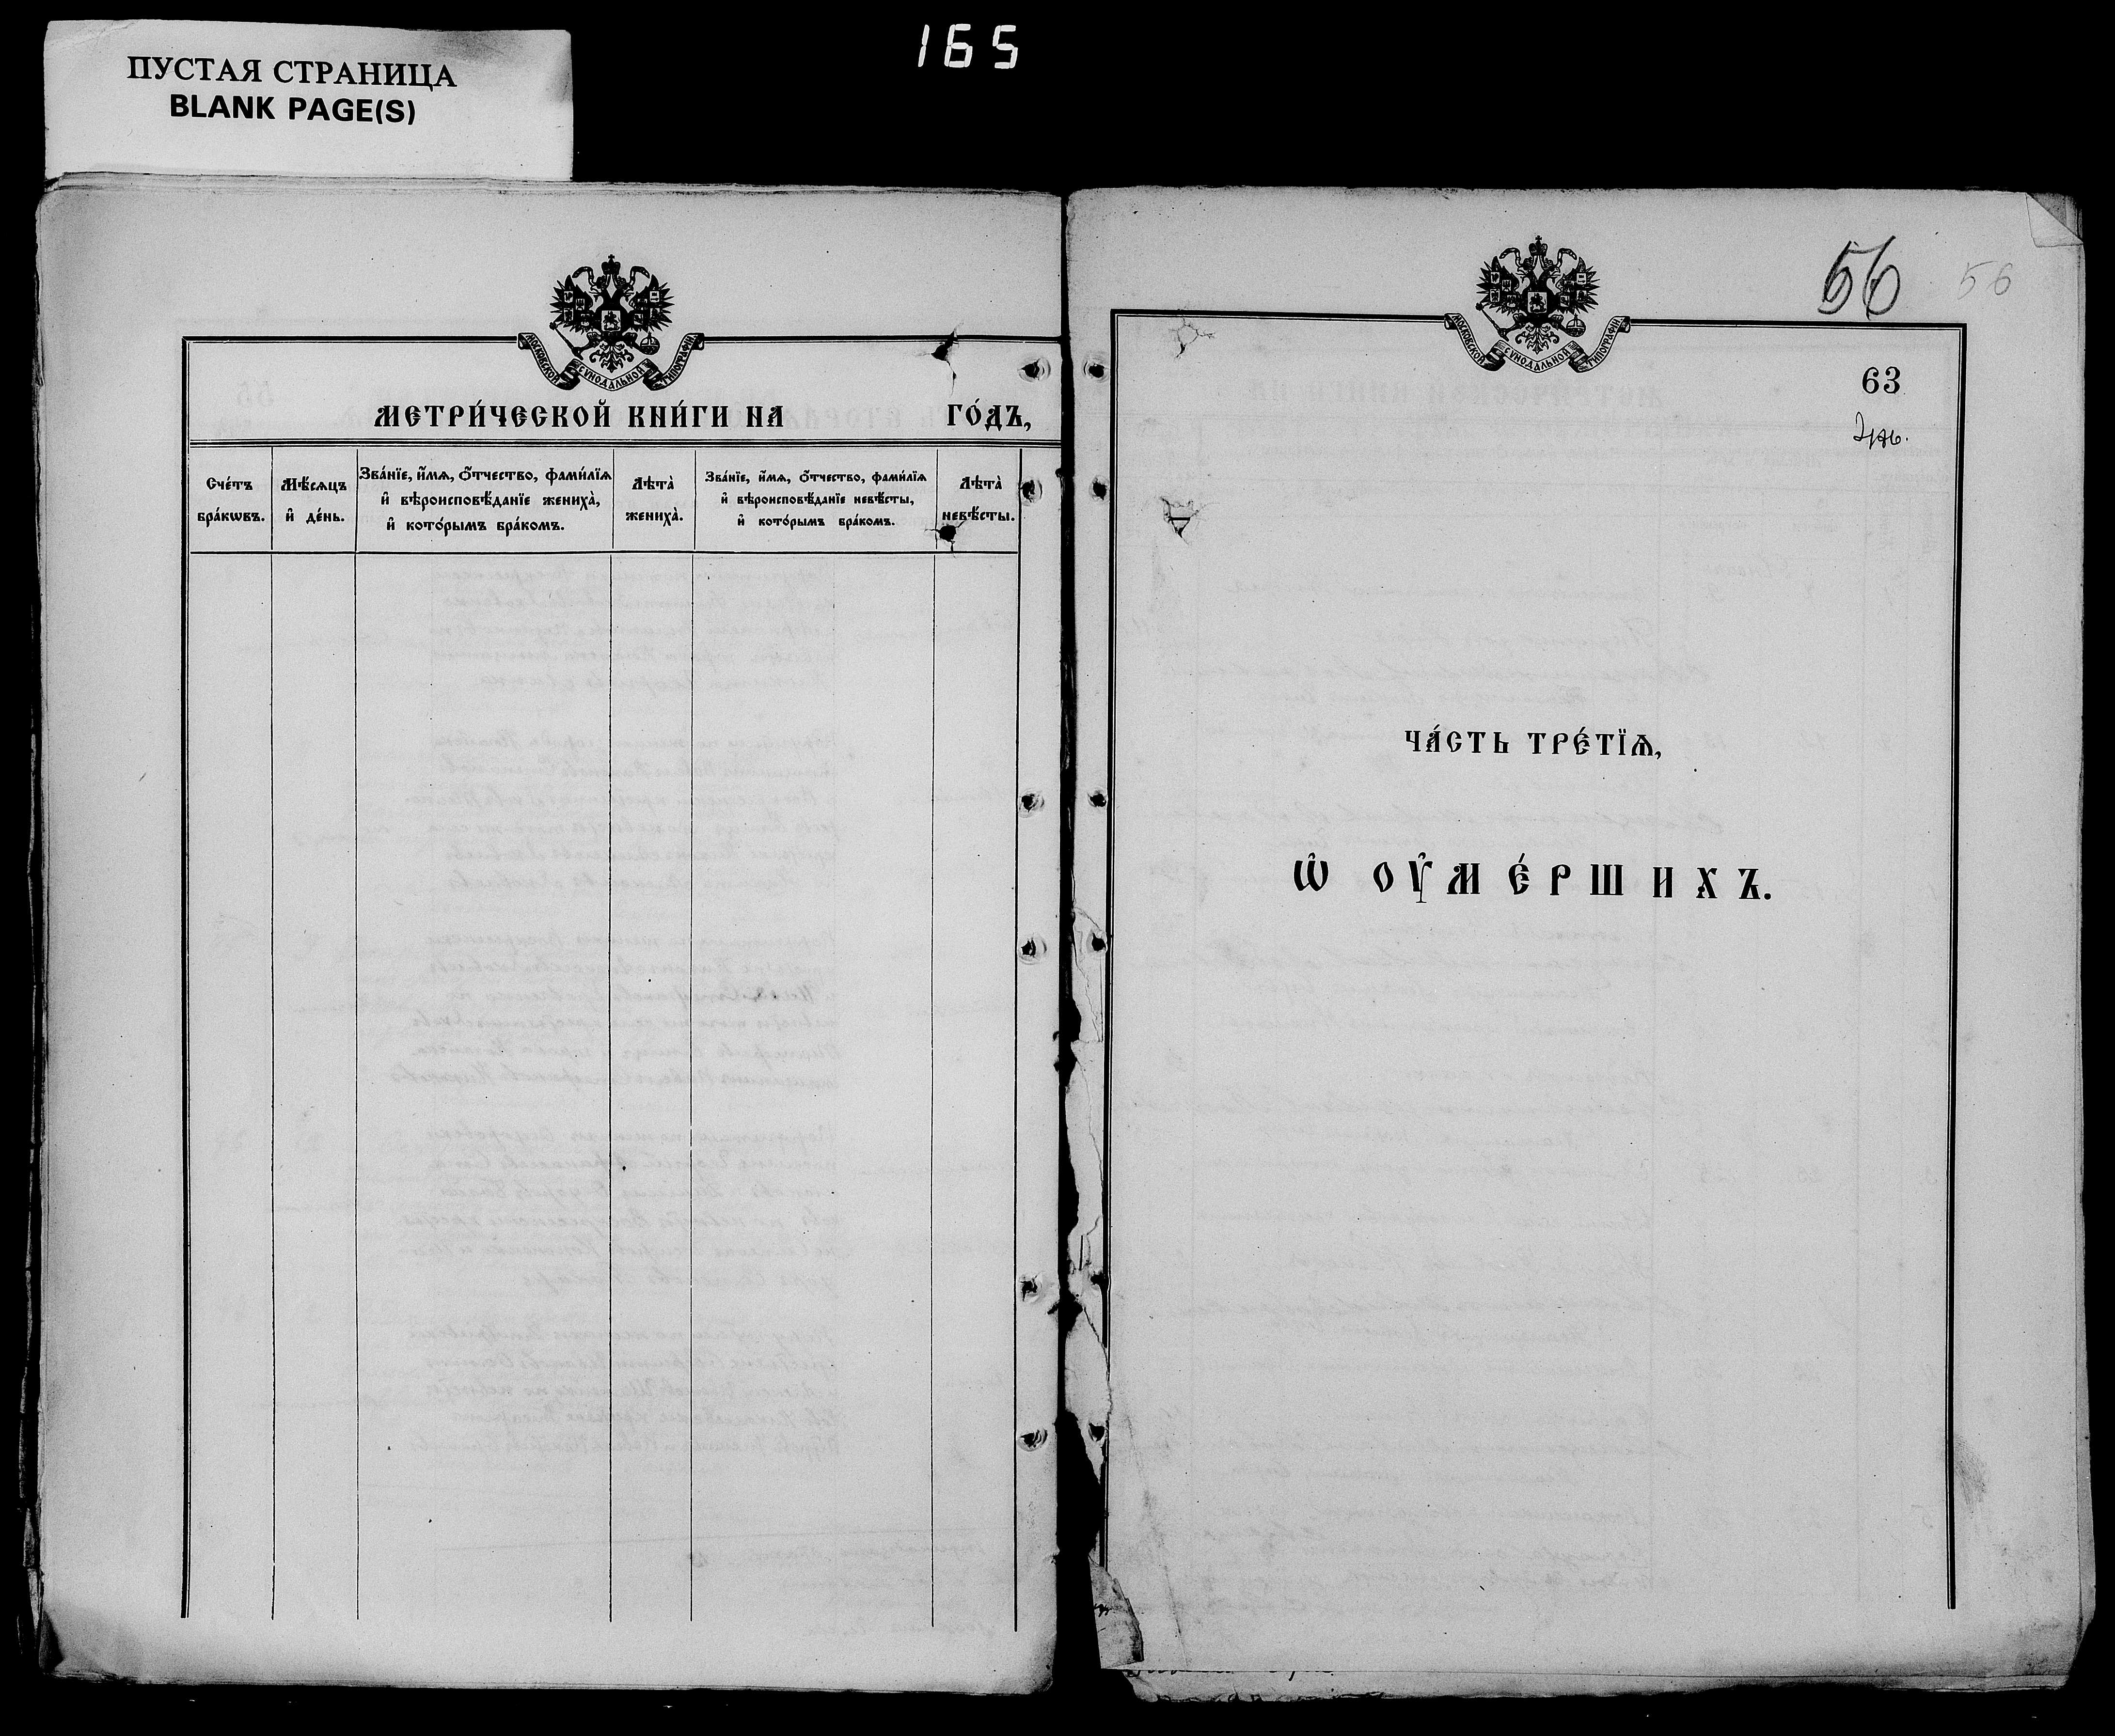 165
ПУСТАЯ СТРАНИЦА
BLANK PAGE(S)
МОСКОВСКОЙ СѴНОДАЛЬНОЙ ТИПОГРАФИИ
МЕТРИ́ЧЕСКОЙ КНИ́ГИ НА ГО́ДЪ,
Сче́тъ
бра́кѡвъ.
Мѣ́сѧцъ
и҆ де́нь.
Зва́нїе, и҆́мѧ, ѻ҆́тчество, фами́лїѧ
и҆ вѣроисповѣ́данїе женихà,
и҆ кото́рымъ бра́комъ.
Лѣтà
женихà.
Зва́нїе, и҆́мѧ, ѻ҆́тчество, фами́лїѧ
и҆ вѣроисповѣ́данїе невѣ́сты,
и҆ кото́рымъ бра́комъ.
Лѣтà
невѣ́сты.
56 56
МОСКОВСКОЙ СѴНОДАЛЬНОЙ ТИПОГРАФИИ
63
ЧА́СТЬ ТРЕ́ТЇѦ,
Ѡ҆ ОУ҆МЕ́РШИХЪ.